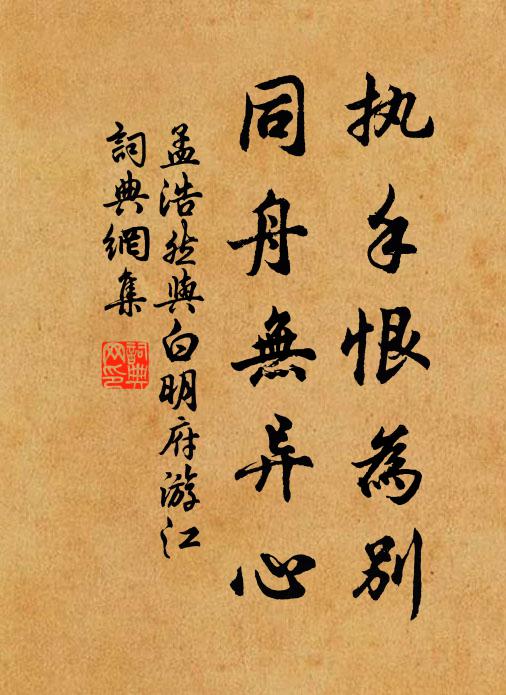 执手恨為别
同舟無异心
孟浩然與白明府游江
詞典網集
詞典
网印